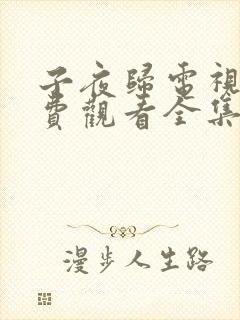 子夜歸電視
費觀看全集
漫步人生路